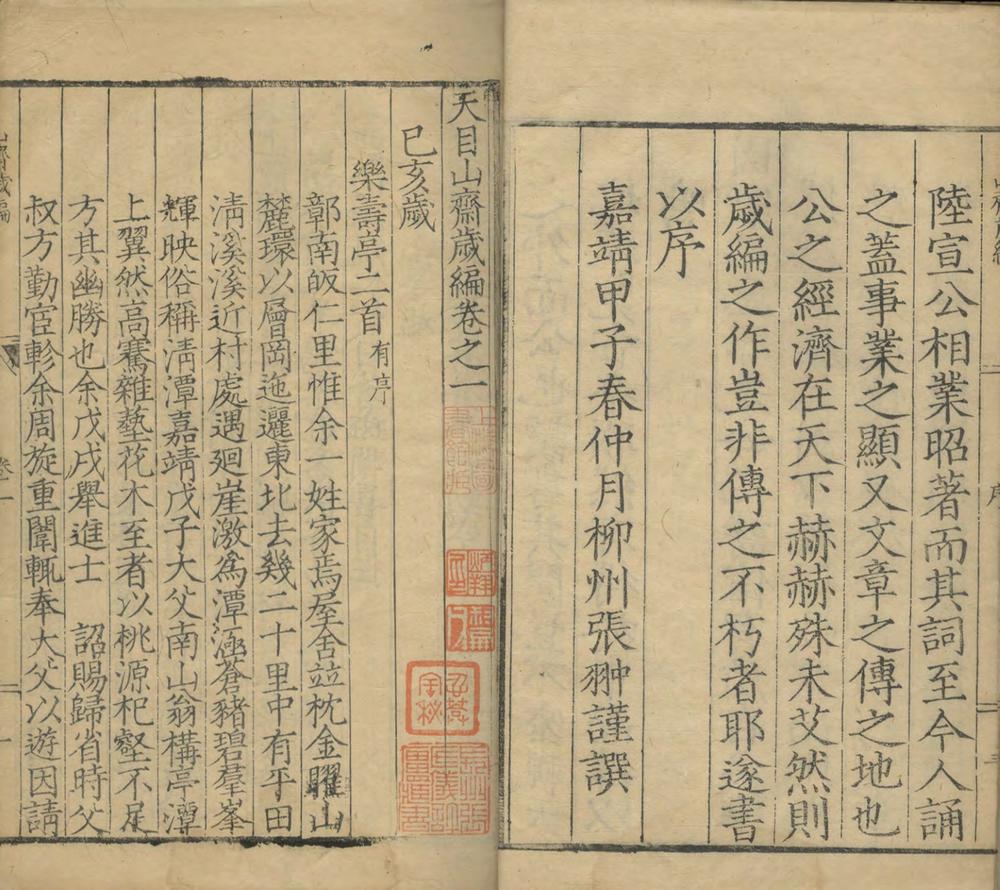 陸宣公相業昭著而其詞至今人誦
之蓋事業之顯又文章之傳之地也
公之經濟在天下赫赫殊未艾然則
歲編之作豈非傳之不朽者耶遂書
以序
嘉靖甲子春仲月柳州張翀謹譔
序
天目山齋歲編卷之一
己亥歲
樂壽亭二首有序
鄣南皈仁里惟余一姓家焉屋舍竝枕金矅山
麓環以層岡迤邐東北去幾二十里中有平田
淸溪溪近村處遇廻崖激爲潭涵蒼豬碧羣峯
輝映俗稱淸潭嘉靖戊子大父南山翁構亭潭
上翼然高騫雜藝花木至者以桃源杞壑不足
方其幽勝也余戊戌舉進士 詔賜歸省時父
叔方勤宦軫余周旋重闈輒奉大父以遊因請
歲編
卷一